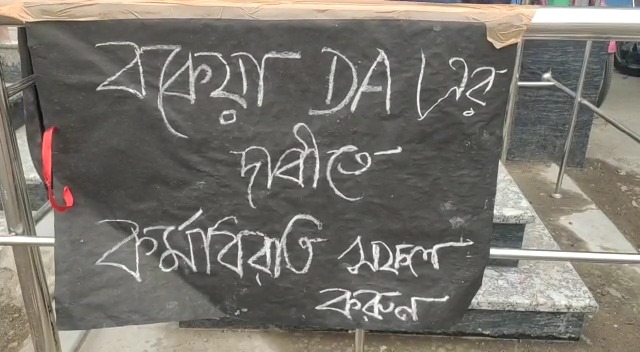 বকেয়া DA এর
দাবীতে
কর্মবিরতি সফল
করুন